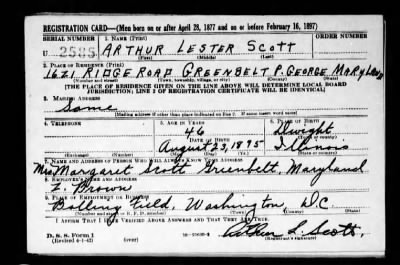 REGISTRATION CARD—(Men born on or after April 28, 1877 and on or before February 16, 1897)
SERIAL NUMBER 1. NAME (Print) ORDER NUMBER
U 2585 ARTHUR LESTER SCOTT
(First) (Middle) (Last)
2. PLACE OF RESIDENCE (Print)
1621 RIDGE ROAD GREENBELT P. GEORGE MARYLAND
(Number and street) (Town, township, village, or city) (County) (State)
[THE PLACE OF RESIDENCE GIVEN ON THE LINE ABOVE WILL DETERMINE LOCAL BOARD
JURISDICTION; LINE 2 OF REGISTRATION CERTIFICATE WILL BE IDENTICAL]
3. MAILING ADDRESS
Same
[Mailing address if other than place indicated on line 2. If same insert word same]
4. TELEPHONE 5. AGE IN YEARS 6. PLACE OF BIRTH
46 Dwight
DATE OF BIRTH (Town or county)
August 25, 1895 Illinois
(Exchange) (Number) (Mo.) (Day) (Yr.) (State or country)
7. NAME AND ADDRESS OF PERSON WHO WILL ALWAYS KNOW YOUR ADDRESS
Mrs Margaret Scott Greenbelt, Maryland
8. EMPLOYER'S NAME AND ADDRESS
Brown
9. PLACE OF EMPLOYMENT OR BUSINESS
Bolling Field, Washington, D.C.
(Number and street or R. F. D. number) (Town) (County) (State)
I AFFIRM THAT I HAVE VERIFIED ABOVE ANSWERS AND THAT THEY ARE TRUE.
D. S. S. Form 1
(Revised 4-1-42) (over) Arthur L. Scott.
(Registrant's signature)